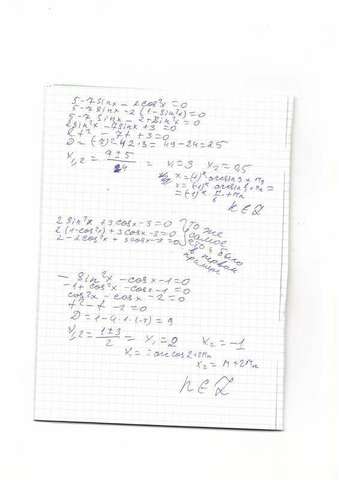 5-7sinx-2cos²x=0
5-7sinx-2(1-sin²x)=0
5-7sinx-2+2sin²x=0
2sin²x-7sinx+3=0
2t²-7t+3=0
D=(-7)²-4·2·3=49-24=25
x₁,₂=
=x₁=3 x₂=0,5
n∈Z
2sin²x+3cosx-3=0
2(1-cos²x)+3cosx-3=0
2-2cos²x+3cosx-3=0
То же
самое
что и было
в первом
примере
-sin²x-cosx-1=0
-1+cos²x-cosx-1=0
cos²x-cosx-2=0
t²-t-2=0
D=1-4·1·(-2)=9
x₁,₂=1±3/2= x₁=2 x₂=-1
x₁=±arccos2+2πn
x₂=π+2πn
n∈Z